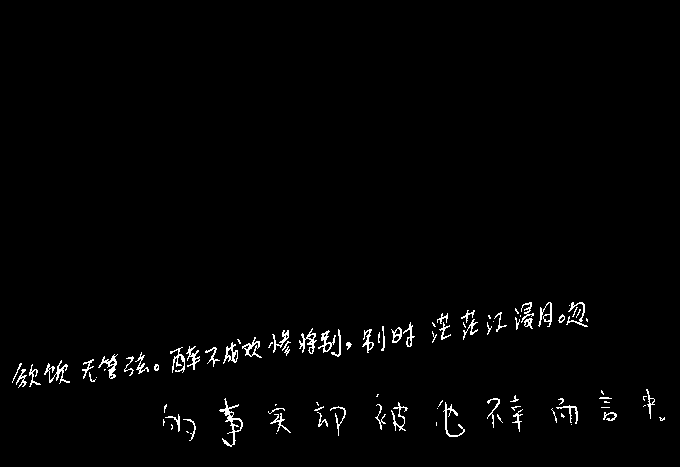 欲饮无管弦。醉不成欢惨将别,别时茫茫江浸月。忽
的事实却被他不幸而言中。